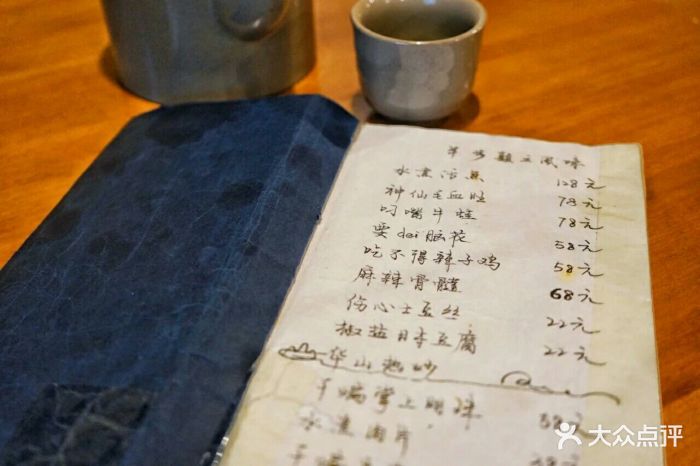 风味
水煮活鱼 128元
神仙毛血旺 78元
叼嘴牛蛙 78元
耍dei脑花 58元
吃不得辣子鸡 58元
麻辣骨髓 68元
伤心土豆丝 22元
椒盐日本豆腐 22元
华山热炒
干煸掌上明珠
水煮肉片
干煸
大众点评